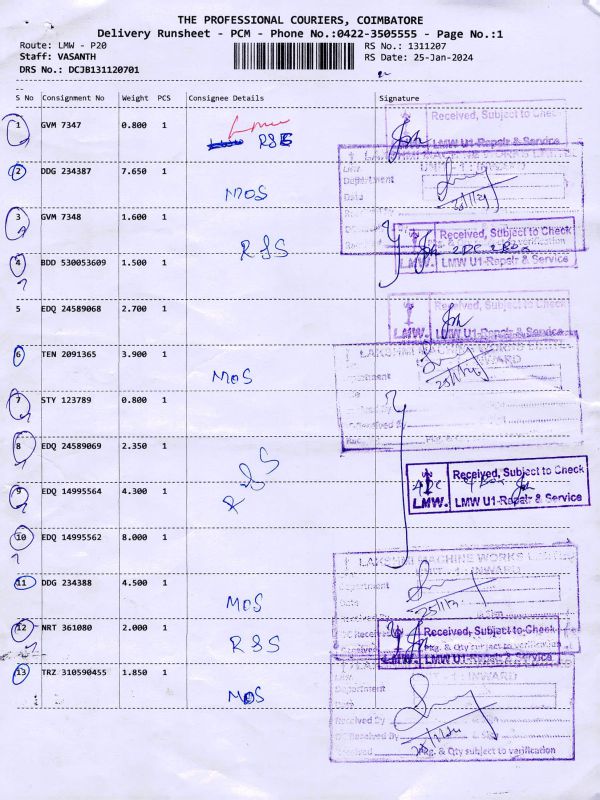 THE PROFESSIONAL COURIERS, COIMBATORE
Delivery Runsheet - PCM - Phone No.:0422-3505555 - Page No.:1
Route: LMW - P20 RS No.: 1311207
Staff: VASANTH RS Date: 25-Jan-2024
DRS No.: DCJB131120701
S No Consignment No Weight PCS Consignee Details Signature
Received, Subject to Check
1 GVM 7347 0.800 1 R&S
LMW U1 Repair & Service
LAKSHMI MACHINE WORKS LIMITED
UNIT - 1 : INWARD
2 DDG 234387 7.650 1 MOS
Department
Date
3 GVM 7348 1.600 1 R&S
Received, Subject to Check
4 BDD 530053609 1.500 1
LMW. LMW U1-Repair & Service
5 EDQ 24589068 2.700 1
Received, Subject to Check
LMW. LMW U1-Repair & Service
LAKSHMI MACHINE WORKS LIMITED
INWARD
6 TEN 2091365 3.900 1 MOS
25/1/24
7 STY 123789 0.800 1
8 EDQ 24589069 2.350 1 R&S
Received, Subject to Check
9 EDQ 14995564 4.300 1
LMW. LMW U1-Repair & Service
10 EDQ 14995562 8.000 1
LAKSHMI MACHINE WORKS LIMITED
UNIT - 1 : INWARD
11 DDG 234388 4.500 1 MOS
Department
Date
12 NRT 361080 2.000 1 R&S
Received, Subject to Check
Pkg. & Qty subject to verification
LMW. LMW U1-Repair & Service
13 TRZ 310590455 1.850 1 MOS
UNIT - 1 : INWARD
Department
Date
Received By
DC Received By
Received Pkg. & Qty subject to verification